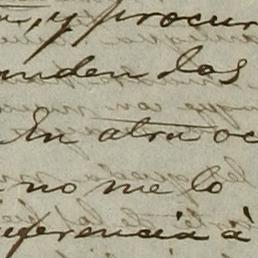 , y procur
nden los
En otra oc
no me lo
ferencia à